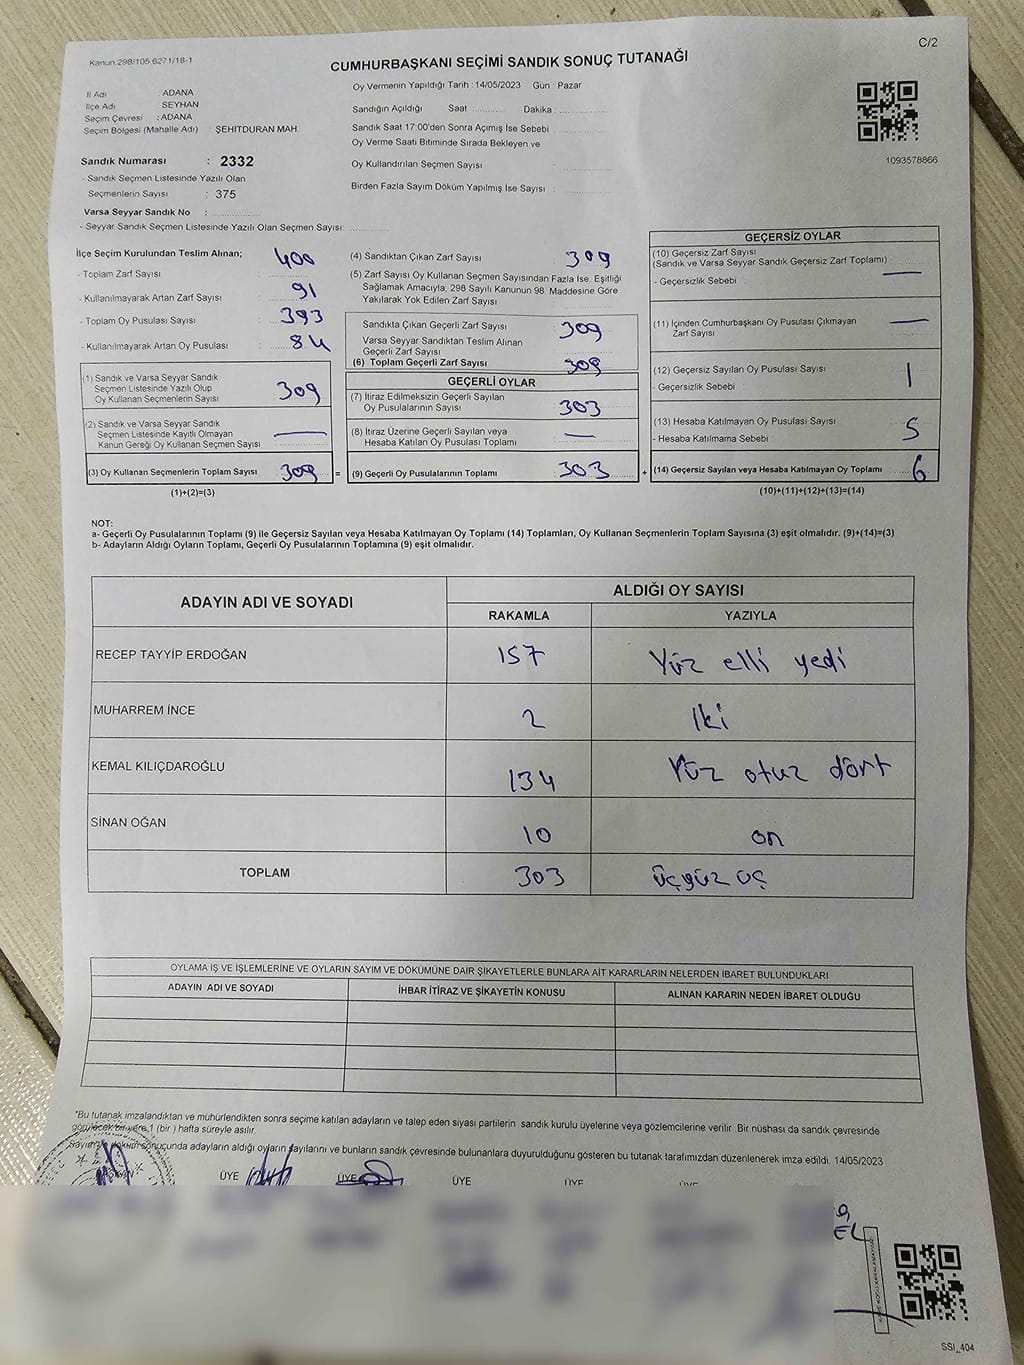 Kanun 298/105 6271/18-1
C/2
CUMHURBAŞKANI SEÇİMİ SANDIK SONUÇ TUTANAĞI
İl Adı ADANA
İlçe Adı SEYHAN
Seçim Çevresi : ADANA
Seçim Bölgesi (Mahalle Adı) : ŞEHİTDURAN MAH.
Sandık Numarası : 2332
- Sandık Seçmen Listesinde Yazılı Olan
Seçmenlerin Sayısı : 375
Varsa Seyyar Sandık No :
- Seyyar Sandık Seçmen Listesinde Yazılı Olan Seçmen Sayısı
Oy Vermenin Yapıldığı Tarih : 14/05/2023 Gün : Pazar
Sandığın Açıldığı Saat Dakika :
Sandık Saat 17:00'den Sonra Açımış İse Sebebi
Oy Verme Saati Bitiminde Sırada Bekleyen ve
Oy Kullandırılan Seçmen Sayısı :
Birden Fazla Sayım Döküm Yapılmış İse Sayısı :
1093578866
İlçe Seçim Kurulundan Teslim Alınan;
- Toplam Zarf Sayısı : 400
- Kullanılmayarak Artan Zarf Sayısı : 91
- Toplam Oy Pusulası Sayısı : 393
- Kullanılmayarak Artan Oy Pusulası : 84
(1) Sandık ve Varsa Seyyar Sandık
Seçmen Listesinde Yazılı Olup
Oy Kullanan Seçmenlerin Sayısı 309
(2) Sandık ve Varsa Seyyar Sandık
Seçmen Listesinde Kayıtlı Olmayan
Kanun Gereği Oy Kullanan Seçmen Sayısı —
(3) Oy Kullanan Seçmenlerin Toplam Sayısı 309 =
(1)+(2)=(3)
(4) Sandıktan Çıkan Zarf Sayısı : 309
(5) Zarf Sayısı Oy Kullanan Seçmen Sayısından Fazla İse, Eşitliği
Sağlamak Amacıyla, 298 Sayılı Kanunun 98. Maddesine Göre
Yakılarak Yok Edilen Zarf Sayısı
Sandıkta Çıkan Geçerli Zarf Sayısı : 309
Varsa Seyyar Sandıktan Teslim Alınan
Geçerli Zarf Sayısı
(6) Toplam Geçerli Zarf Sayısı : 309
GEÇERLİ OYLAR
(7) İtiraz Edilmeksizin Geçerli Sayılan
Oy Pusulalarının Sayısı : 303
(8) İtiraz Üzerine Geçerli Sayılan veya
Hesaba Katılan Oy Pusulası Toplamı : —
(9) Geçerli Oy Pusulalarının Toplamı 303 +
GEÇERSİZ OYLAR
(10) Geçersiz Zarf Sayısı
(Sandık ve Varsa Seyyar Sandık Geçersiz Zarf Toplamı) : —
- Geçersizlik Sebebi :
(11) İçinden Cumhurbaşkanı Oy Pusulası Çıkmayan
Zarf Sayısı —
(12) Geçersiz Sayılan Oy Pusulası Sayısı : 1
- Geçersizlik Sebebi :
(13) Hesaba Katılmayan Oy Pusulası Sayısı : 5
- Hesaba Katılmama Sebebi :
(14) Geçersiz Sayılan veya Hesaba Katılmayan Oy Toplamı : 6
(10)+(11)+(12)+(13)=(14)
NOT:
a- Geçerli Oy Pusulalarının Toplamı (9) ile Geçersiz Sayılan veya Hesaba Katılmayan Oy Toplamı (14) Toplamları, Oy Kullanan Seçmenlerin Toplam Sayısına (3) eşit olmalıdır. (9)+(14)=(3)
b- Adayların Aldığı Oyların Toplamı, Geçerli Oy Pusulalarının Toplamına (9) eşit olmalıdır.
ADAYIN ADI VE SOYADI ALDIĞI OY SAYISI
RAKAMLA YAZIYLA
RECEP TAYYİP ERDOĞAN 157 Yüz elli yedi
MUHARREM İNCE 2 İki
KEMAL KILIÇDAROĞLU 134 Yüz otuz dört
SİNAN OĞAN 10 on
TOPLAM 303 üçyüz üç
OYLAMA İŞ VE İŞLEMLERİNE VE OYLARIN SAYIM VE DÖKÜMÜNE DAİR ŞİKAYETLERLE BUNLARA AİT KARARLARIN NELERDEN İBARET BULUNDUKLARI
ADAYIN ADI VE SOYADI İHBAR İTİRAZ VE ŞİKAYETİN KONUSU ALINAN KARARIN NEDEN İBARET OLDUĞU
*Bu tutanak imzalandıktan ve mühürlendikten sonra seçime katılan adayların ve talep eden siyasi partilerin sandık kurulu üyelerine veya gözlemcilerine verilir. Bir nüshası da sandık çevresinde
görülecek bir yere 1 (bir ) hafta süreyle asılır.
Sayım ve döküm sonucunda adayların aldığı oyların sayılarını ve bunların sandık çevresinde bulunanlara duyurulduğunu gösteren bu tutanak tarafımızdan düzenlenerek imza edildi. 14/05/2023
ÜYE ÜYE ÜYE ÜYE ÜYE
SSI_404